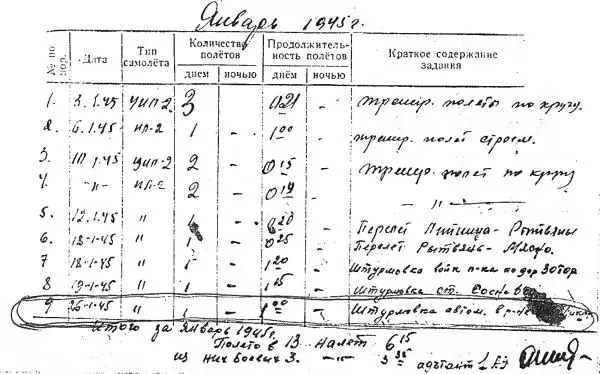 Январь 1945г.
№ по пор. Дата Тип самолёта Количество полётов днем ночью Продолжительность полётов днём ночью Краткое содержание задания
1. 3.1.45 УИЛ-2 3 0 21 - тренир. полеты по кругу.
2. 6.1.45 ИЛ-2 1 - 1 00 - тренир. полет строем.
3. 1.45 УИЛ-2 2 - 0 15 - тренир. полет по кругу
4. -"- ИЛ-2 2 - 0 19 - -"-
5. 12.1.45 " 1 - 0 20 - Перелет
6. 18-1-45 " 1 - 0 25 - Перелет
7 18-1-45 " 1 - 1 20 - Штурмовка войск п-ка по дор
8 19-1-45 " 1 - 1 15 - Штурмовка ст.
9 26-1-45 " 1 - 1 00 - Штурмовка автом. в р-не
Итого за январь 1945г.
Полетов 13 налет 6 15
из них боевых 3. -"- 3 35 адъютант